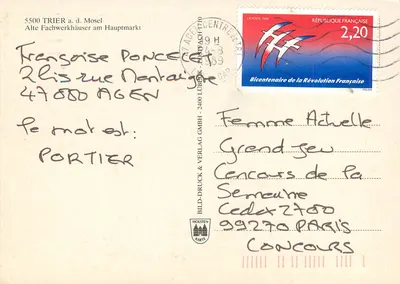 5500 TRIER a. d. Mosel
Alte Fachwerkhäuser am Hauptmarkt
Françoise PONCECE
2 bis rue Montaigne
47000 AGEN
le mot est:
PORTIER
BILD-DRUCK & VERLAG GMBH · 2400 LÜBECK
RÉPUBLIQUE FRANÇAISE
2,20
Bicentenaire de la Révolution Française
Femme Actuelle
Grand Jeu
Concours de la
Semaine
Cedex 2700
99270 PARIS
CONCOURS